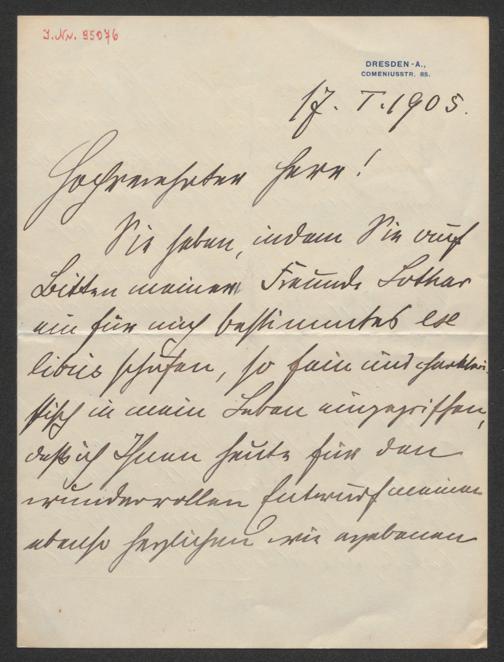 J.Nr. 95076
DRESDEN-A.,
COMENIUSSTR. 85.
17. I. 1905.
Hochverehrter Herr!
Sie haben, indem Sie auf
Bitten meiner Freunde Lothar
ein für mich bestimmtes ex
libris schufen, so fein und charakteri-
stisch in mein Leben eingegriffen,
daß ich Ihnen heute für den
wundervollen Entwurf meinen
ebenso herzlichen wie ergebenen